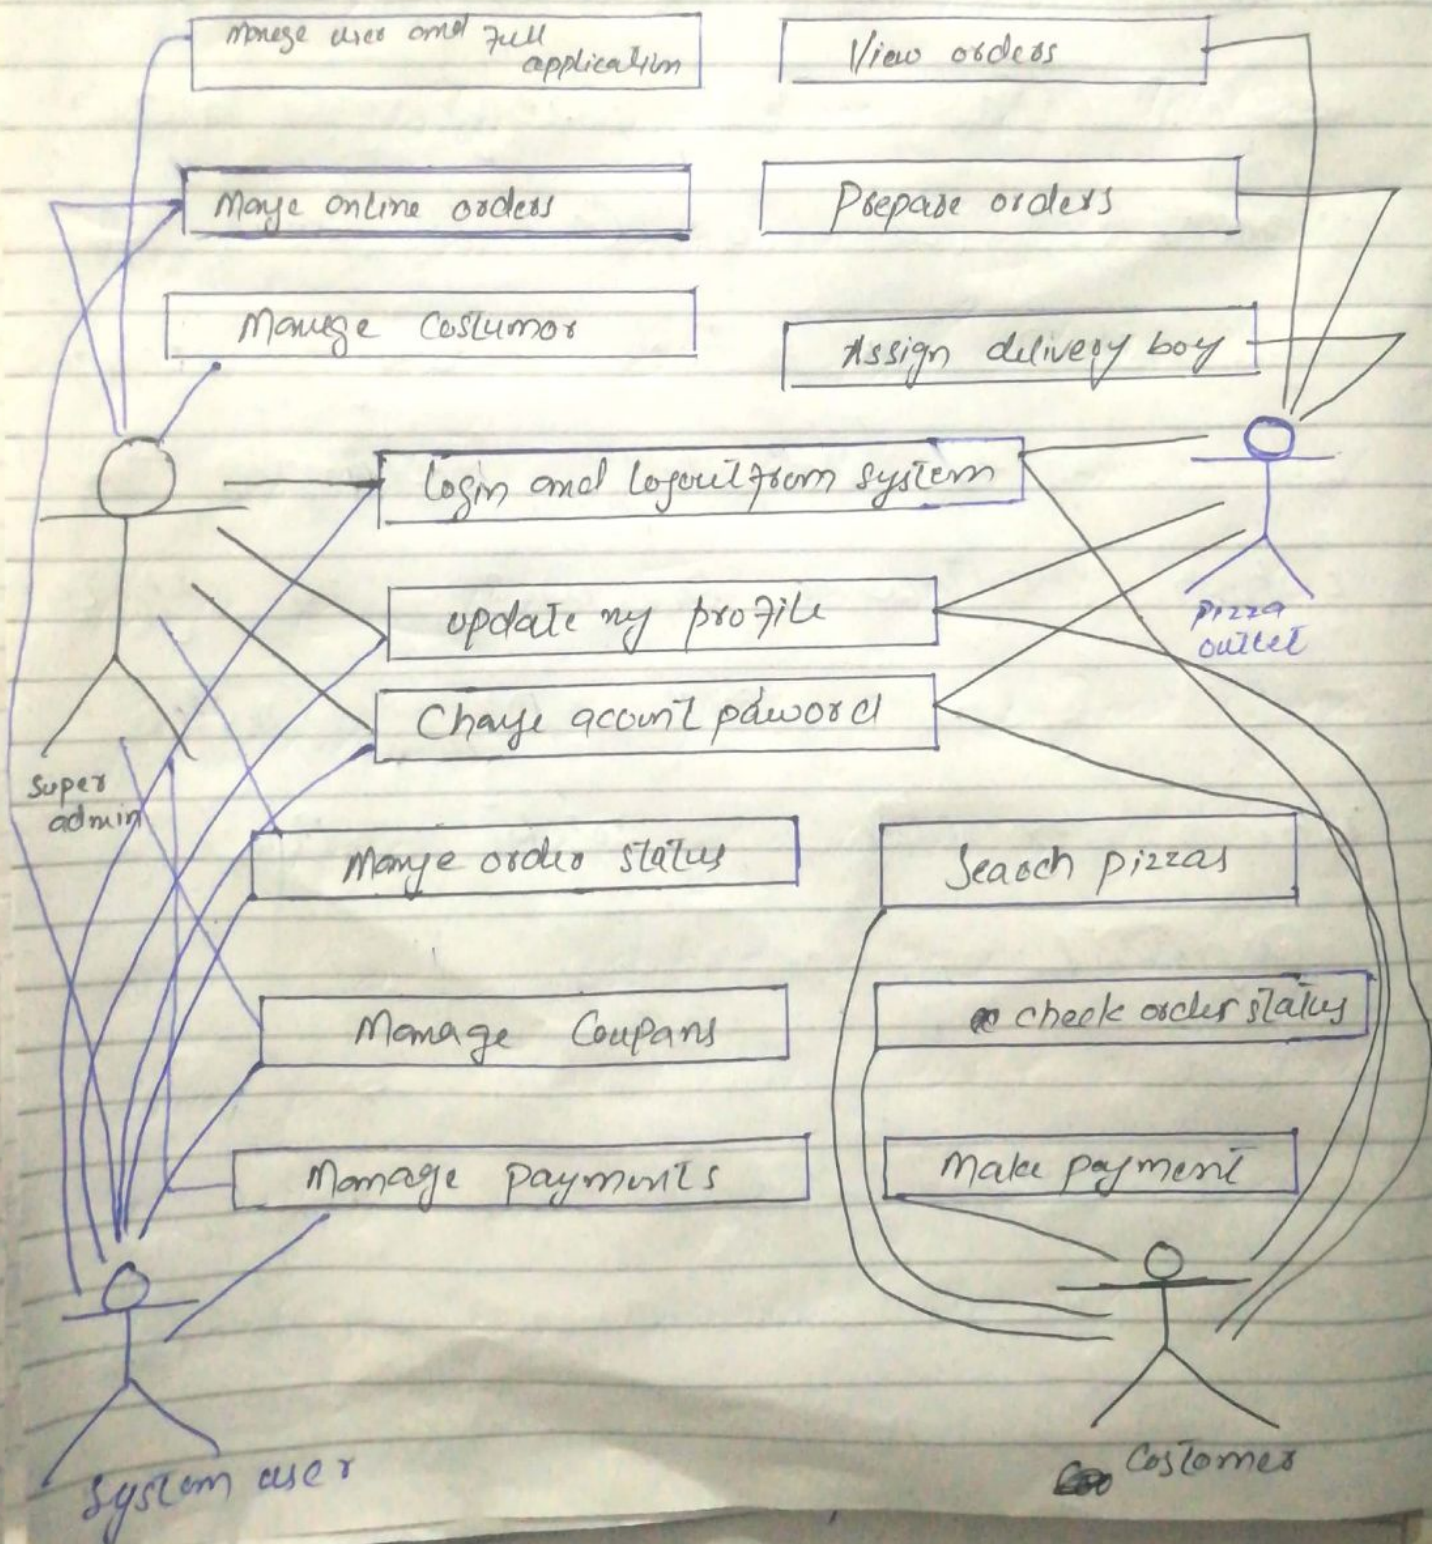 Manege user and Full
application
View orders
Manje online orders
Prepare orders
Manege Costumor
Assign delivery boy
Login and logout from system
update my profile
pizza
outlet
Change acount paword
Super
admin
Manje order status
Search pizzas
Manage Coupans
check order status
Manage payments
Make payment
System user
Costomer